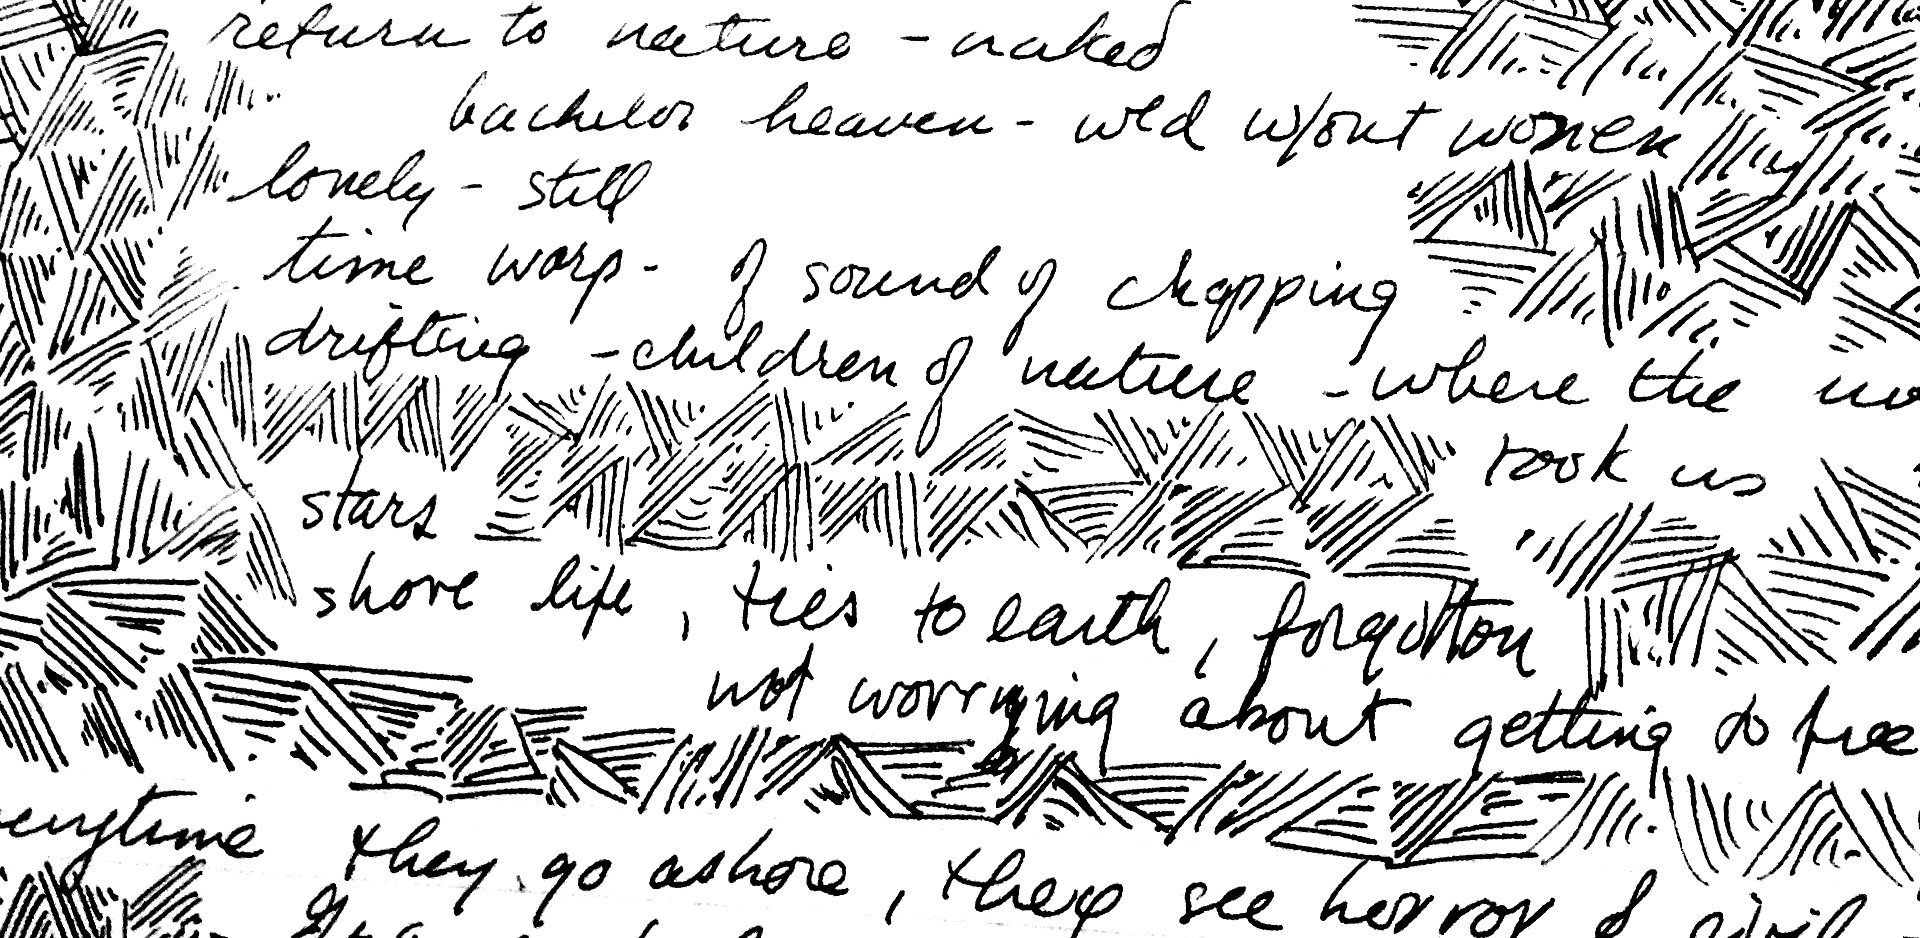 return to nature - naked
bachelor heaven - wld w/out women
lonely - still
time warp - of sound of chopping
drifting - children of nature - where the
took us
stars
shore life, ties to earth, forgotton
not worrying about getting to free
they go ashore, they see horror of